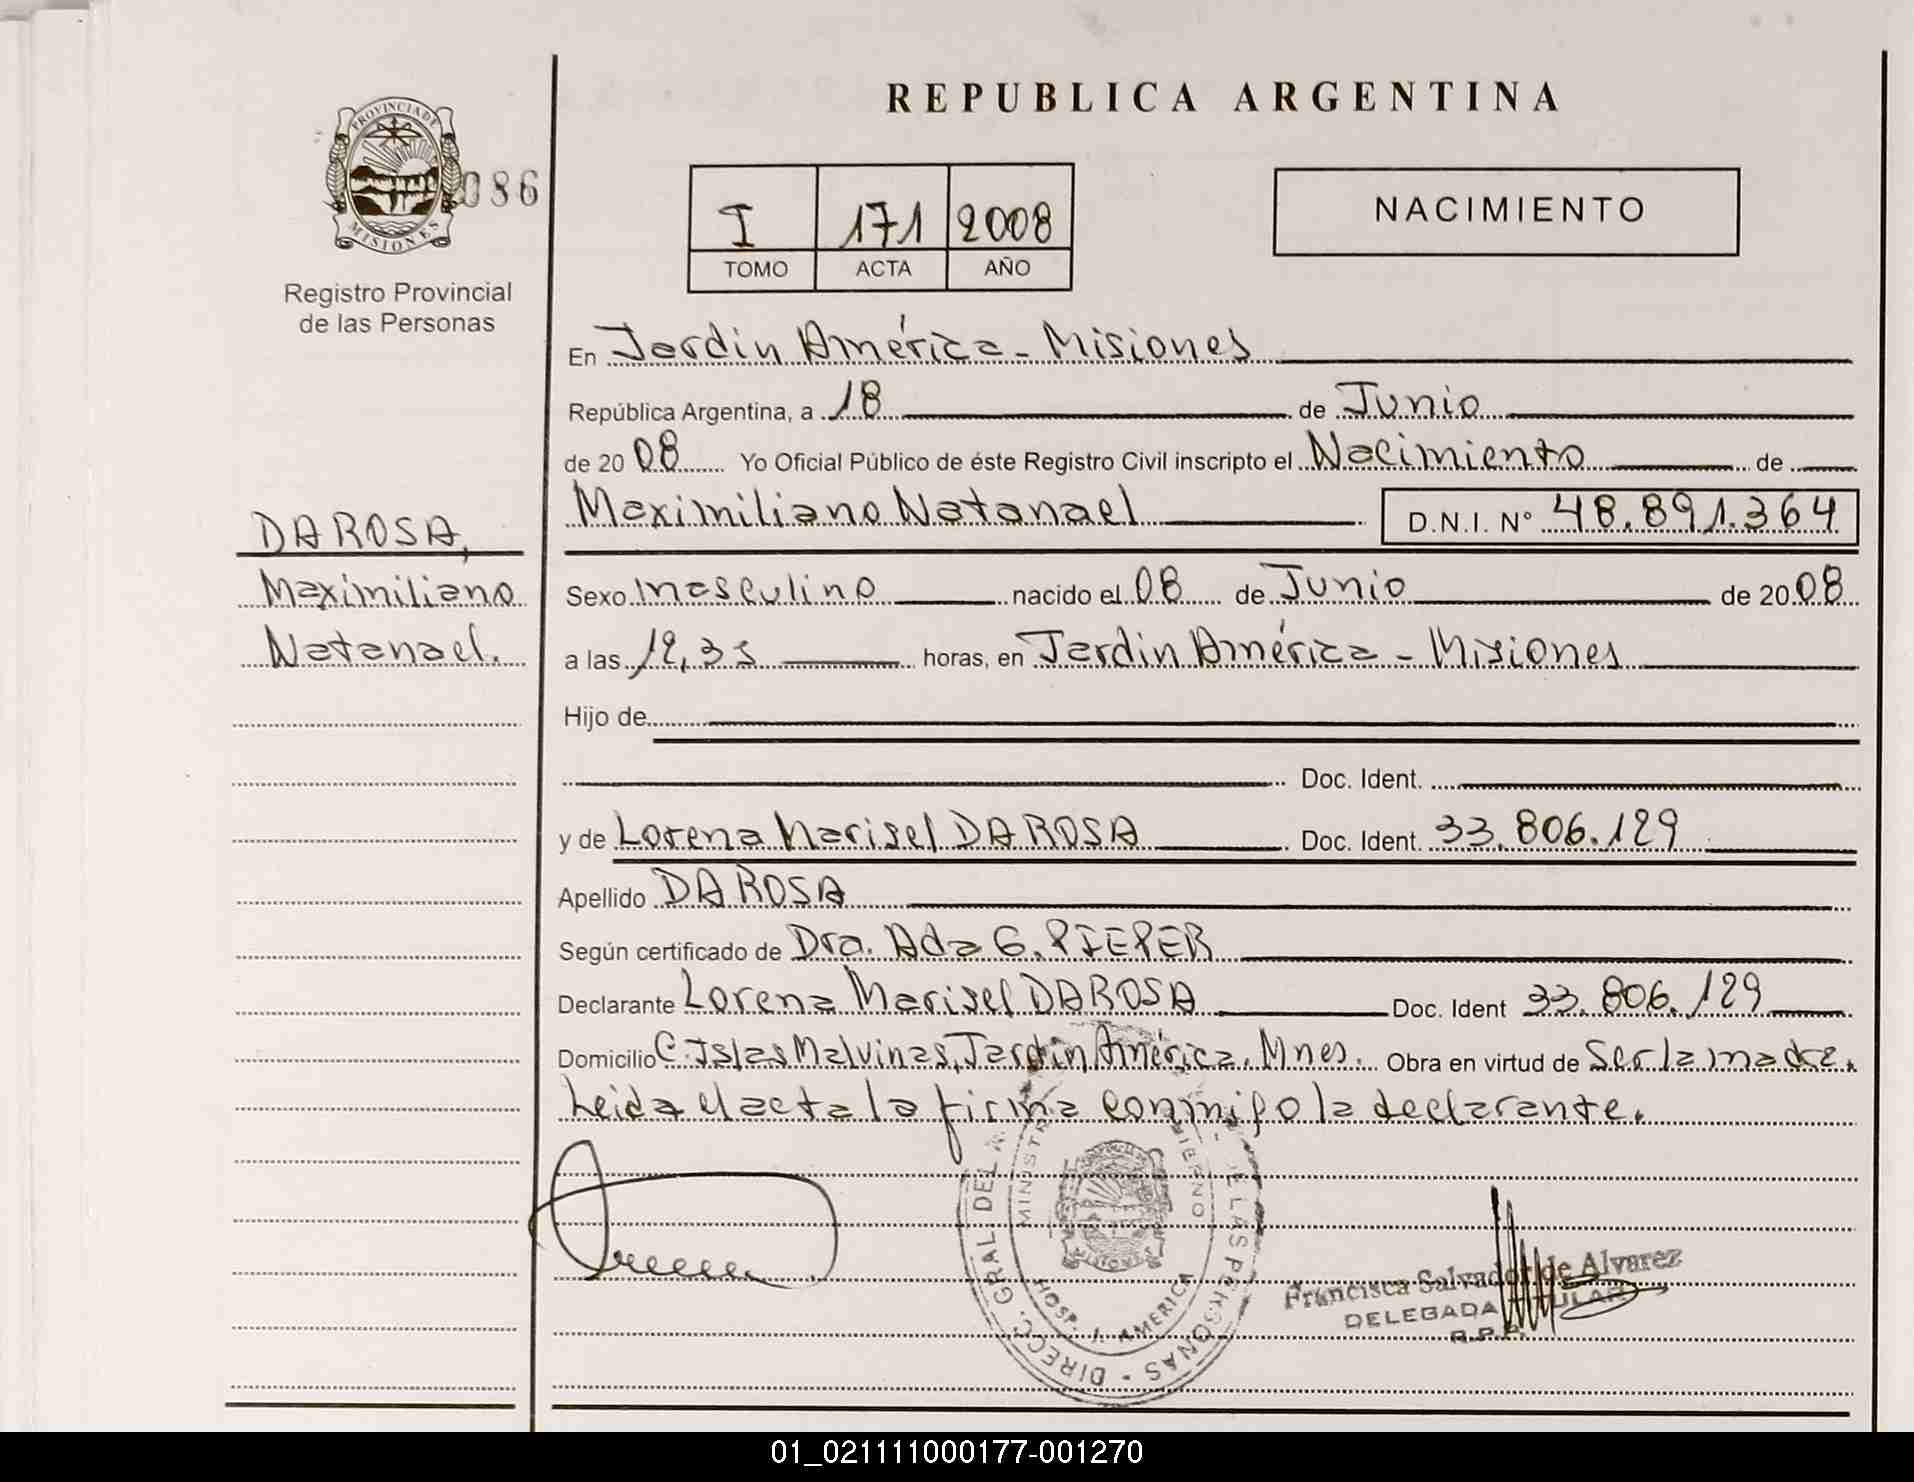 REPUBLICA ARGENTINA
PROVINCIA DE
MISIONES
086
Registro Provincial
de las Personas
I 171 2008
TOMO ACTA AÑO
NACIMIENTO
En Jardín América - Misiones
República Argentina, a 18 de Junio
de 2008 Yo Oficial Público de éste Registro Civil inscripto el Nacimiento de
Maximiliano Natanael D.N.I. N° 48.891.364
DA ROSA,
Maximiliano
Natanael.
Sexo masculino nacido el 08 de Junio de 2008
a las 12,35 horas, en Jardín América - Misiones
Hijo de
Doc. Ident.
y de Lorena Marisel DA ROSA Doc. Ident. 33.806.129
Apellido DA ROSA
Según certificado de Dra. Ada G. PIEPER
Declarante Lorena Marisel DA ROSA Doc. Ident 33.806.129
Domicilio C. Islas Malvinas, Jardín América. Mnes. Obra en virtud de Ser la madre.
Leida el acta la firma conmigo la declarante.
DIRECC. GRAL. DEL DE LAS PERSONAS
HOSP. J. AMERICA
MISIONES
Francisca Salvador de Alvarez
DELEGADA TITULAR
R.P.P.
01_021111000177-001270